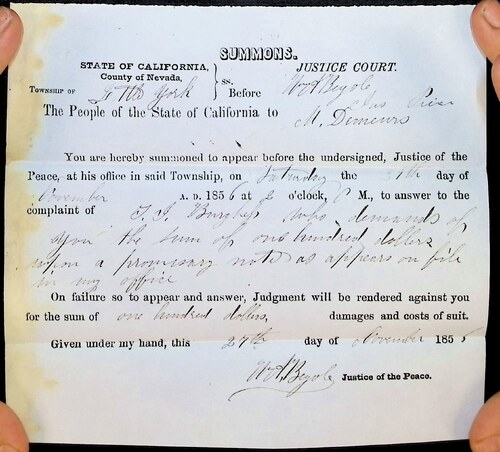 SUMMONS.
STATE OF CALIFORNIA, JUSTICE COURT.
County of Nevada, ss.
TOWNSHIP OF Little York Before Wm A Begole
The People of the State of California to
M. Demeurs
You are hereby summoned to appear before the undersigned, Justice of the
Peace, at his office in said Township, on Saturday the day of
November A. D. 1856 at 2 o'clock, P M., to answer to the
complaint of who demands of
you the sum of one hundred dollars
upon a promisary note as appears on file
in my office
On failure so to appear and answer, Judgment will be rendered against you
for the sum of one hundred dollars, damages and costs of suit.
Given under my hand, this 27th day of November 1856
Wm A. Begole Justice of the Peace.